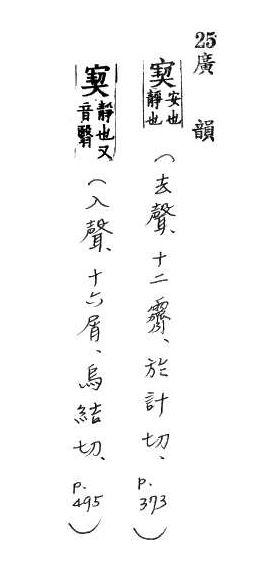 25廣韻
寞 安也靜也 (去聲、十二霽、於計切、p.373)
寞 靜也又音翳 (入聲、十六屑、烏結切、p.495)